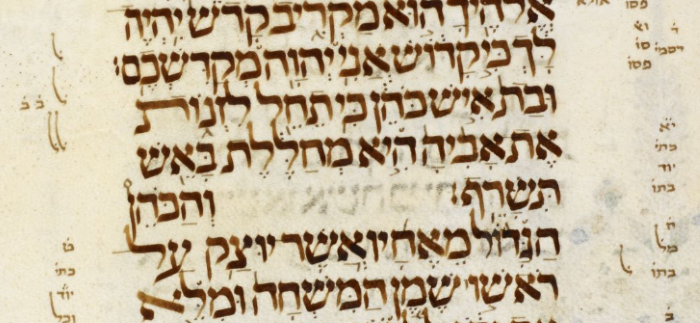 אלהיך הוא מקריב קדש יהיה
לך כי קדוש אני יהוה מקדשכם׃
ובת איש כהן כי תחל לזנות
את אביה היא מחללת באש
תשרף׃ והכהן
הגדול מאחיו אשר יוצק על
ראשו שמן המשחה ומלא